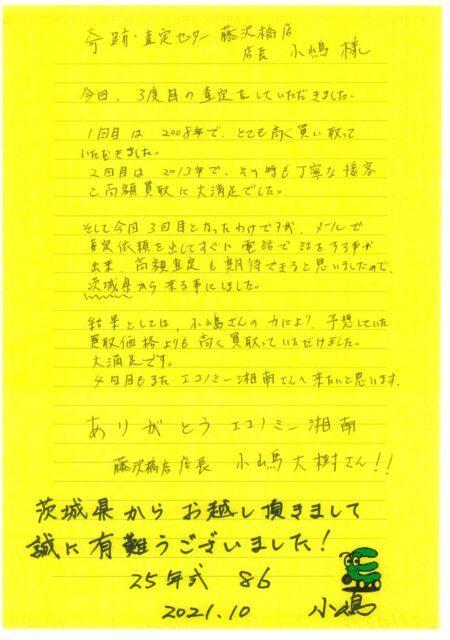 奇跡・査定センター 藤沢橋店
店長 小嶋 様
今回、3度目の査定をしていただきました。
1回目は 2008年で、とても高く買い取って
いただきました。
2回目は 2013年で、その時も丁寧な接客
と高額買取に大満足でした。
そして今回3回目となったわけですが、メールで
査定依頼を出してすぐに電話で話をする事が
出来、高額査定も期待できると思いましたので、
茨城県から来る事にしました。
結果としては、小嶋さんの力により、予想していた
買取価格よりも高く買取っていただけました。
大満足です。
4回目もまたエコノミー湘南さんへ来たいと思います。
ありがとう エコノミー湘南
藤沢橋店店長 小嶋大樹さん!!
茨城県からお越し頂きまして
誠に有難うございました!
25年式 86
2021.10 小嶋